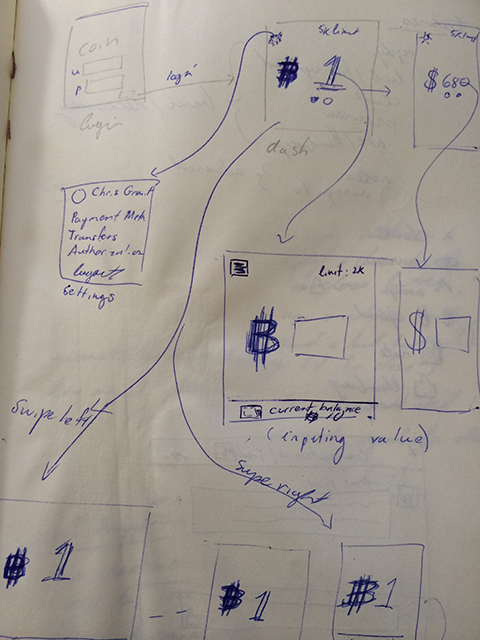 coin
u
p
login
login
5k limit
₿ 1
dash
5k limit
$ 680
Chris Grant
Payment Meth
Transfers
Authorization
logout
settings
limit: 2K
₿
$
current balance
(inputing value)
Swipe left
Swipe right
₿ 1
₿ 1
₿ 1